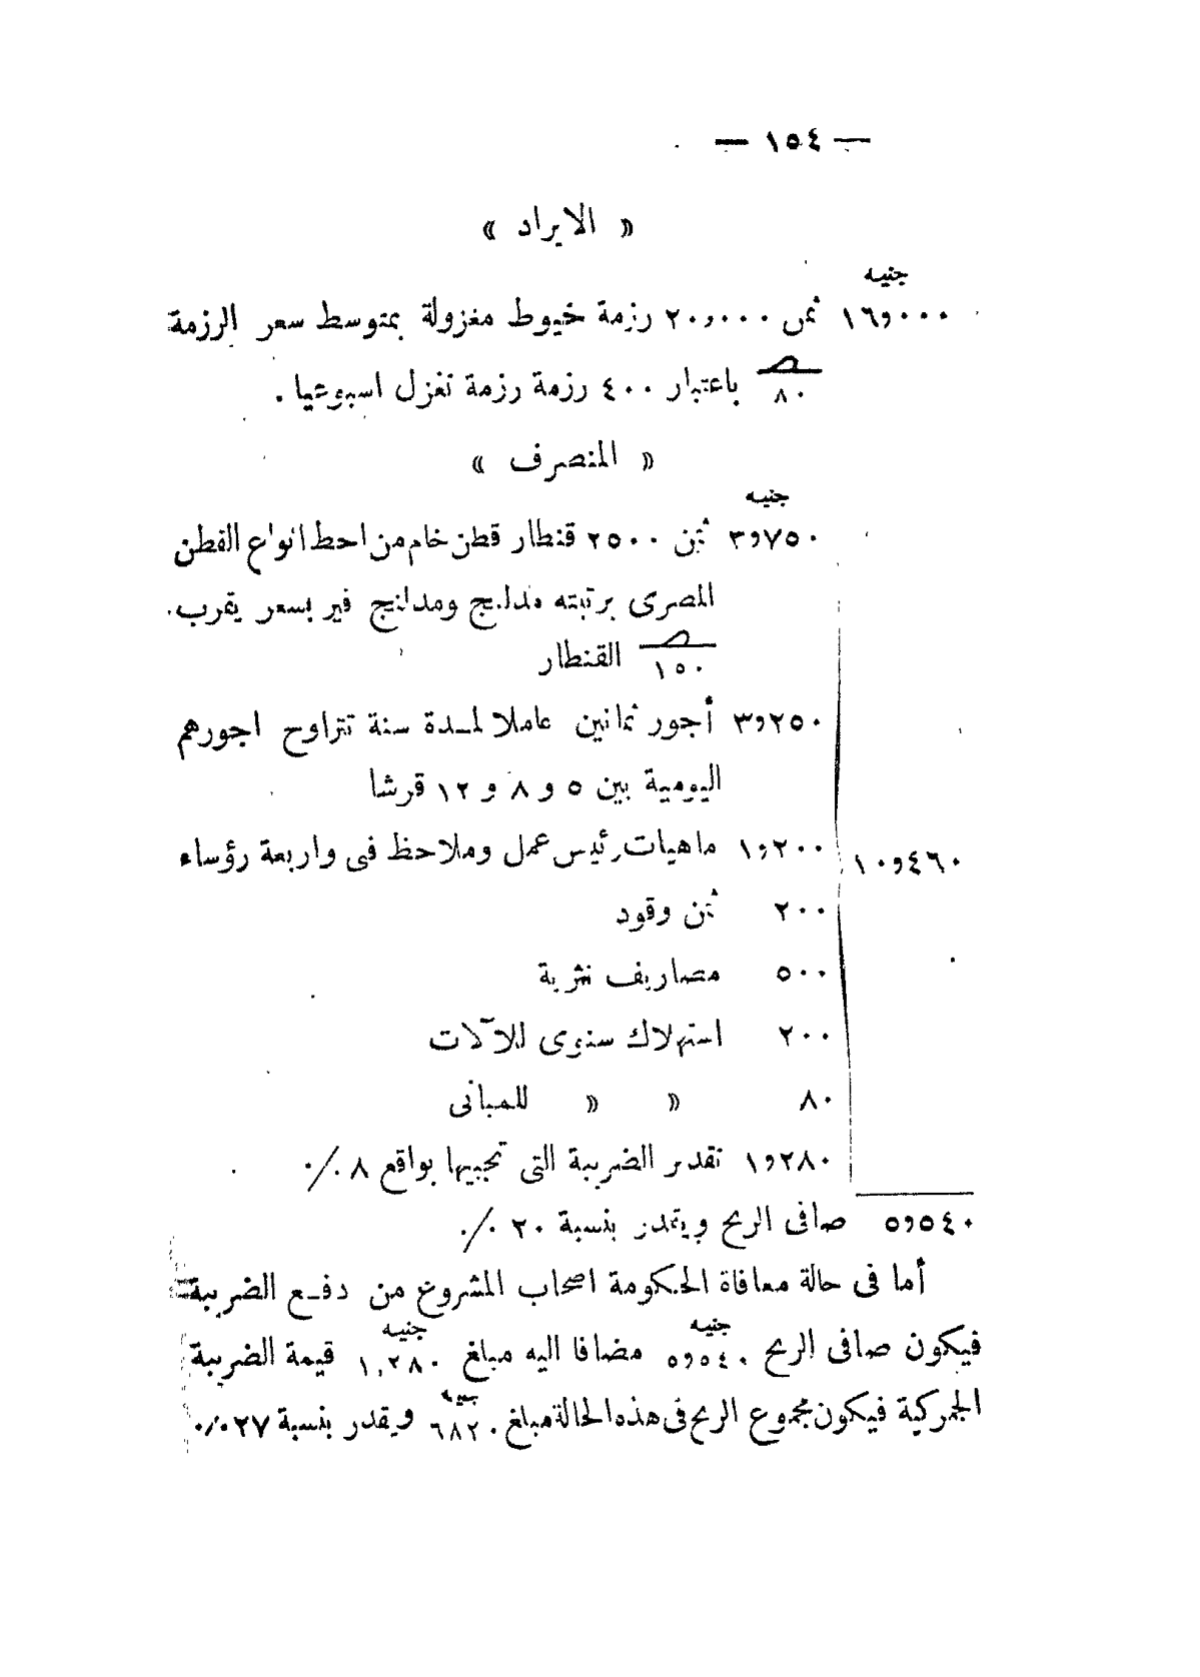 — ١٥٤ —
« الايراد »
جنيه
١٦,٠٠٠ ثمن ٢٠,٠٠٠ رزمة خيوط مغزولة بمتوسط سعر الرزمة
صـ ٨٠ باعتبار ٤٠٠ رزمة رزمة تغزل اسبوعيا .
« المنصرف »
جنيه
٣,٧٥٠ ثمن ٢٥٠٠ قنطار قطن خام من احط انواع القطن
المصرى برتبته مدلنج ومدلنج فير بسعر يقرب
صـ ١٥٠ القنطار
٣,٢٥٠ أجور ثمانين عاملا لمـدة سنة تتراوح اجورهم
اليومية بين ٥ و ٨ و ١٢ قرشا
١٠,٤٦٠ ١,٢٠٠ ماهيات رئيس عمل وملاحظ فى واربعة رؤساء
٢٠٠ ثمن وقود
٥٠٠ مصاريف نثرية
٢٠٠ استهلاك سنوى للآلات
٨٠ » » للمبانى
١,٢٨٠ تقدير الضريبة التى تجبيها بواقع ٨ ٠/٠
٥,٥٤٠ صافى الربح ويقدر بنسبة ٢٠ ٠/٠
أما فى حالة معافاة الحكومة اصحاب المشروع من دفـع الضريبة
جنيه جنيه
فيكون صافى الربح ٥,٥٤٠ مضافا اليه مبلغ ١,٢٨٠ قيمة الضريبة
جنيه
الجمركية فيكون مجموع الربح فى هذه الحالة مبلغ ٦٨٢٠ ويقدر بنسبة ٢٧ ٠/٠